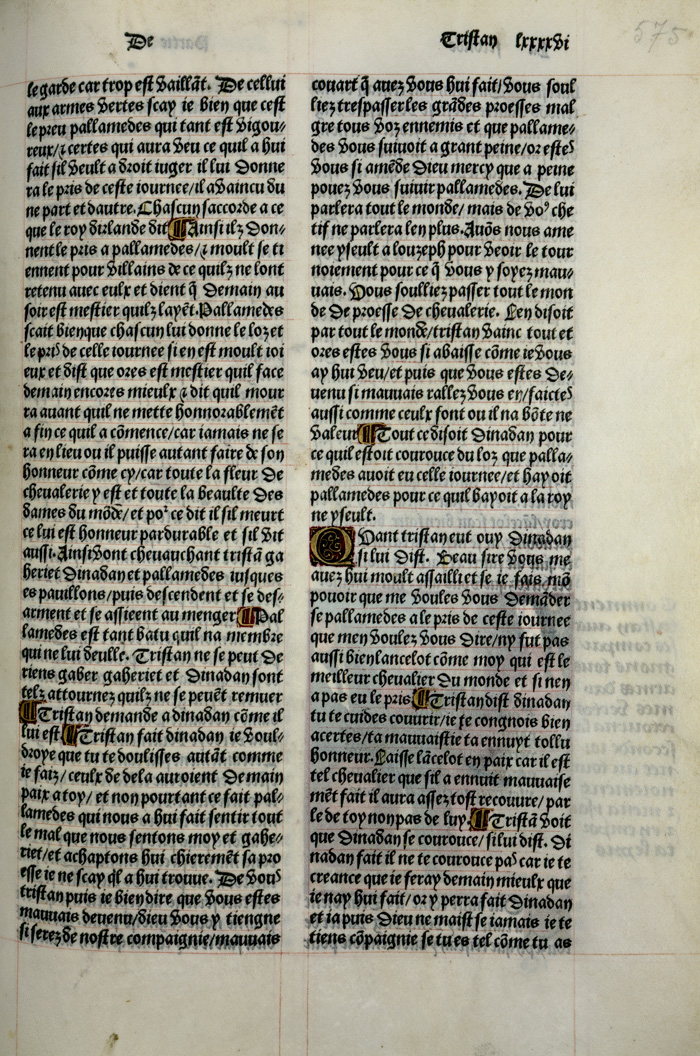 De
Tristan lxxxxvi
575
le garde car trop est vaillãt. De cellui
aux armes vertes scay ie bien que cest
le preu pallamedes qui tant est vigou⸗
reux/⁊ certes qui aura veu ce quil a hui
fait sil veult a droit iuger il lui donne
ra le pris de ceste iournee/il a vaincu du
ne part et dautre. Chascun saccorde a ce
que le roy dirlande dit ¶ Ainsi ilz don⸗
nent le pris a pallamedes/⁊ moult se ti
ennent pour villains de ce quilz ne lont
retenu auec eulx et dient q̃ demain au
soir est mestier quilz layẽt. Pallamedes
scait bien que chascun lui donne le loz et
le pris de celle iournee si en est moult ioi
eux et dist que ores est mestier quil face
demain encores mieulx ⁊ dit quil mour
ra auant quil ne mette honnorablemẽt
a fin ce quil a cõmence/car iamais ne se
ra en lieu ou il puisse autant faire de son
honneur cõme cy/car toute la fleur de
cheualerie y est et toute la beaulte des
dames du mõde/et poꝛ ce dit il sil meurt
ce lui est honneur pardurable et sil vit
aussi. Ainsi vont cheuauchant tristã ga
heriet dinadan et pallamedes iusques
es pauillons/puis descendent et se des⸗
arment et se assieent au menger ¶ Pal
lamedes est tant batu quil na membre
qui ne lui deulle. Tristan ne se peut de
riens gaber gaheriet et dinadan sont
telz attournez quilz ne se peuẽt remuer
¶ Tristan demande a dinadan cõme il
lui est ¶ Tristan fait dinadan ie voul⸗
droye que tu te doulisses autãt comme
ie faiz/ ceulx de dela auroient demain
paix a toy/ et non pourtant ce fait pal⸗
lamedes qui nous a hui fait sentir tout
le mal que nous sentons moy et gahe⸗
riet/et achaptons hui chieremẽt sa pro
esse ie ne scay q̃l a hui trouue. De vous
tristan puis ie bien dire que vous estes
mauuais deuenu/dieu vous y tiengne
si serez de nostre compaignie/mauuais
couart q̃ auez vous hui fait/vous soul
liez trespasser les grãdes proesses mal
gre tous voz ennemis et que pallame⸗
des vous suiuoit a grant peine/or estes
vous si amẽde dieu mercy que a peine
pouez vous suiuir pallamedes. De lui
parlera tout le monde/ mais de vo⁹ che
tif ne parlera len plus. Auõs nous ame
nee yseult a louzeph pour veoir le tour
noiement pour ce q̃ vous y soyez mau⸗
uais. Vous soulliez passer tout le mon
de de proesse de cheualerie. Len disoit
par tout le monde/tristan vainc tout et
ores estes vous si abaisse cõme ie vous
ay hui veu/et puis que vous estes de⸗
uenu si mauuais rallez vous en/faictes
aussi comme ceulx font ou il na bõte ne
valeur ¶ Tout ce disoit dinadan pour
ce quil estoit courouce du loz que palla⸗
medes auoit eu celle iournee/et hayoit
pallamedes pour ce quil bayoit a la roy
ne yseult.
Quant tristan eut ouy dinadan
si lui dist. Beau sire vous me
auez hui moult assailli et se ie fais mõ
pouoir que me voules vous demãder
se pallamedes a le pris de ceste iournee
que men voulez vous dire/ny fut pas
aussi bien lancelot cõme moy qui est le
meilleur cheualier du monde et si nen
a pas eu le pris ¶ Tristan dist dinadan
tu te cuides couurir/ie te congnois bien
acertes/ta mauuaistie ta ennuyt tollu
honneur. Laisse lãcelot en paix car il est
tel cheualier que sil a ennuit mauuaise
mẽt fait il aura assez tost recouure/ par
le de toy non pas de luy. ¶ Tristã voit
que dinadan se courouce/si lui dist. Di
nadan fait il ne te courouce pas car ie te
creance que ie feray demain mieulx que
ie nay hui fait/ or y perra fait dinadan
et ia puis dieu ne maist se iamais ie te
tiens cõpaignie se tu es tel cõme tu as